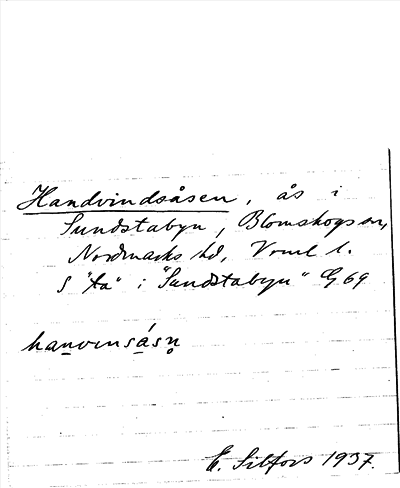 Handvindsåsen, ås i
Sundstabyn, Blomskogs sn,
Nordmarks hd, Vrml l.
S "ta" i "Sundstabyn" G 69
hanvinsásn̥
E. Sibfors 1937.